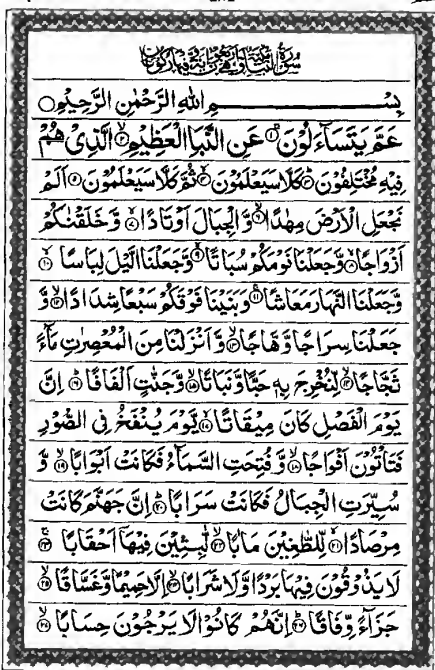 بِسْمِ اللهِ الرَّحْمٰنِ الرَّحِيْمِ
عَمَّ يَتَسَآءَلُوْنَ ۝١ عَنِ النَّبَاِ الْعَظِيْمِ ۝٢ الَّذِىْ هُمْ
فِيْهِ مُخْتَلِفُوْنَ ۝٣ كَلَّا سَيَعْلَمُوْنَ ۝٤ ثُمَّ كَلَّا سَيَعْلَمُوْنَ ۝٥ اَلَمْ
نَجْعَلِ الْاَرْضَ مِهٰدًا ۝٦ وَّ الْجِبَالَ اَوْتَادًا ۝٧ وَّ خَلَقْنٰكُمْ
اَزْوَاجًا ۝٨ وَّ جَعَلْنَا نَوْمَكُمْ سُبَاتًا ۝٩ وَّ جَعَلْنَا الَّيْلَ لِبَاسًا ۝١٠
وَّ جَعَلْنَا النَّهَارَ مَعَاشًا ۝١١ وَ بَنَيْنَا فَوْقَكُمْ سَبْعًا شِدَادًا ۝١٢ وَّ
جَعَلْنَا سِرَاجًا وَّهَّاجًا ۝١٣ وَّ اَنْزَلْنَا مِنَ الْمُعْصِرٰتِ مَآءً
ثَجَّاجًا ۝١٤ لِّنُخْرِجَ بِهٖ حَبًّا وَّ نَبَاتًا ۝١٥ وَّ جَنّٰتٍ اَلْفَافًا ۝١٦ اِنَّ
يَوْمَ الْفَصْلِ كَانَ مِيْقَاتًا ۝١٧ يَّوْمَ يُنْفَخُ فِى الصُّوْرِ
فَتَاْتُوْنَ اَفْوَاجًا ۝١٨ وَّ فُتِحَتِ السَّمَآءُ فَكَانَتْ اَبْوَابًا ۝١٩ وَّ
سُيِّرَتِ الْجِبَالُ فَكَانَتْ سَرَابًا ۝٢٠ اِنَّ جَهَنَّمَ كَانَتْ
مِرْصَادًا ۝٢١ لِّلطَّاغِيْنَ مَاٰبًا ۝٢٢ لّٰبِثِيْنَ فِيْهَاۤ اَحْقَابًا ۝٢٣
لَا يَذُوْقُوْنَ فِيْهَا بَرْدًا وَّ لَا شَرَابًا ۝٢٤ اِلَّا حَمِيْمًا وَّ غَسَّاقًا ۝٢٥
جَزَآءً وِّفَاقًا ۝٢٦ اِنَّهُمْ كَانُوْا لَا يَرْجُوْنَ حِسَابًا ۝٢٧